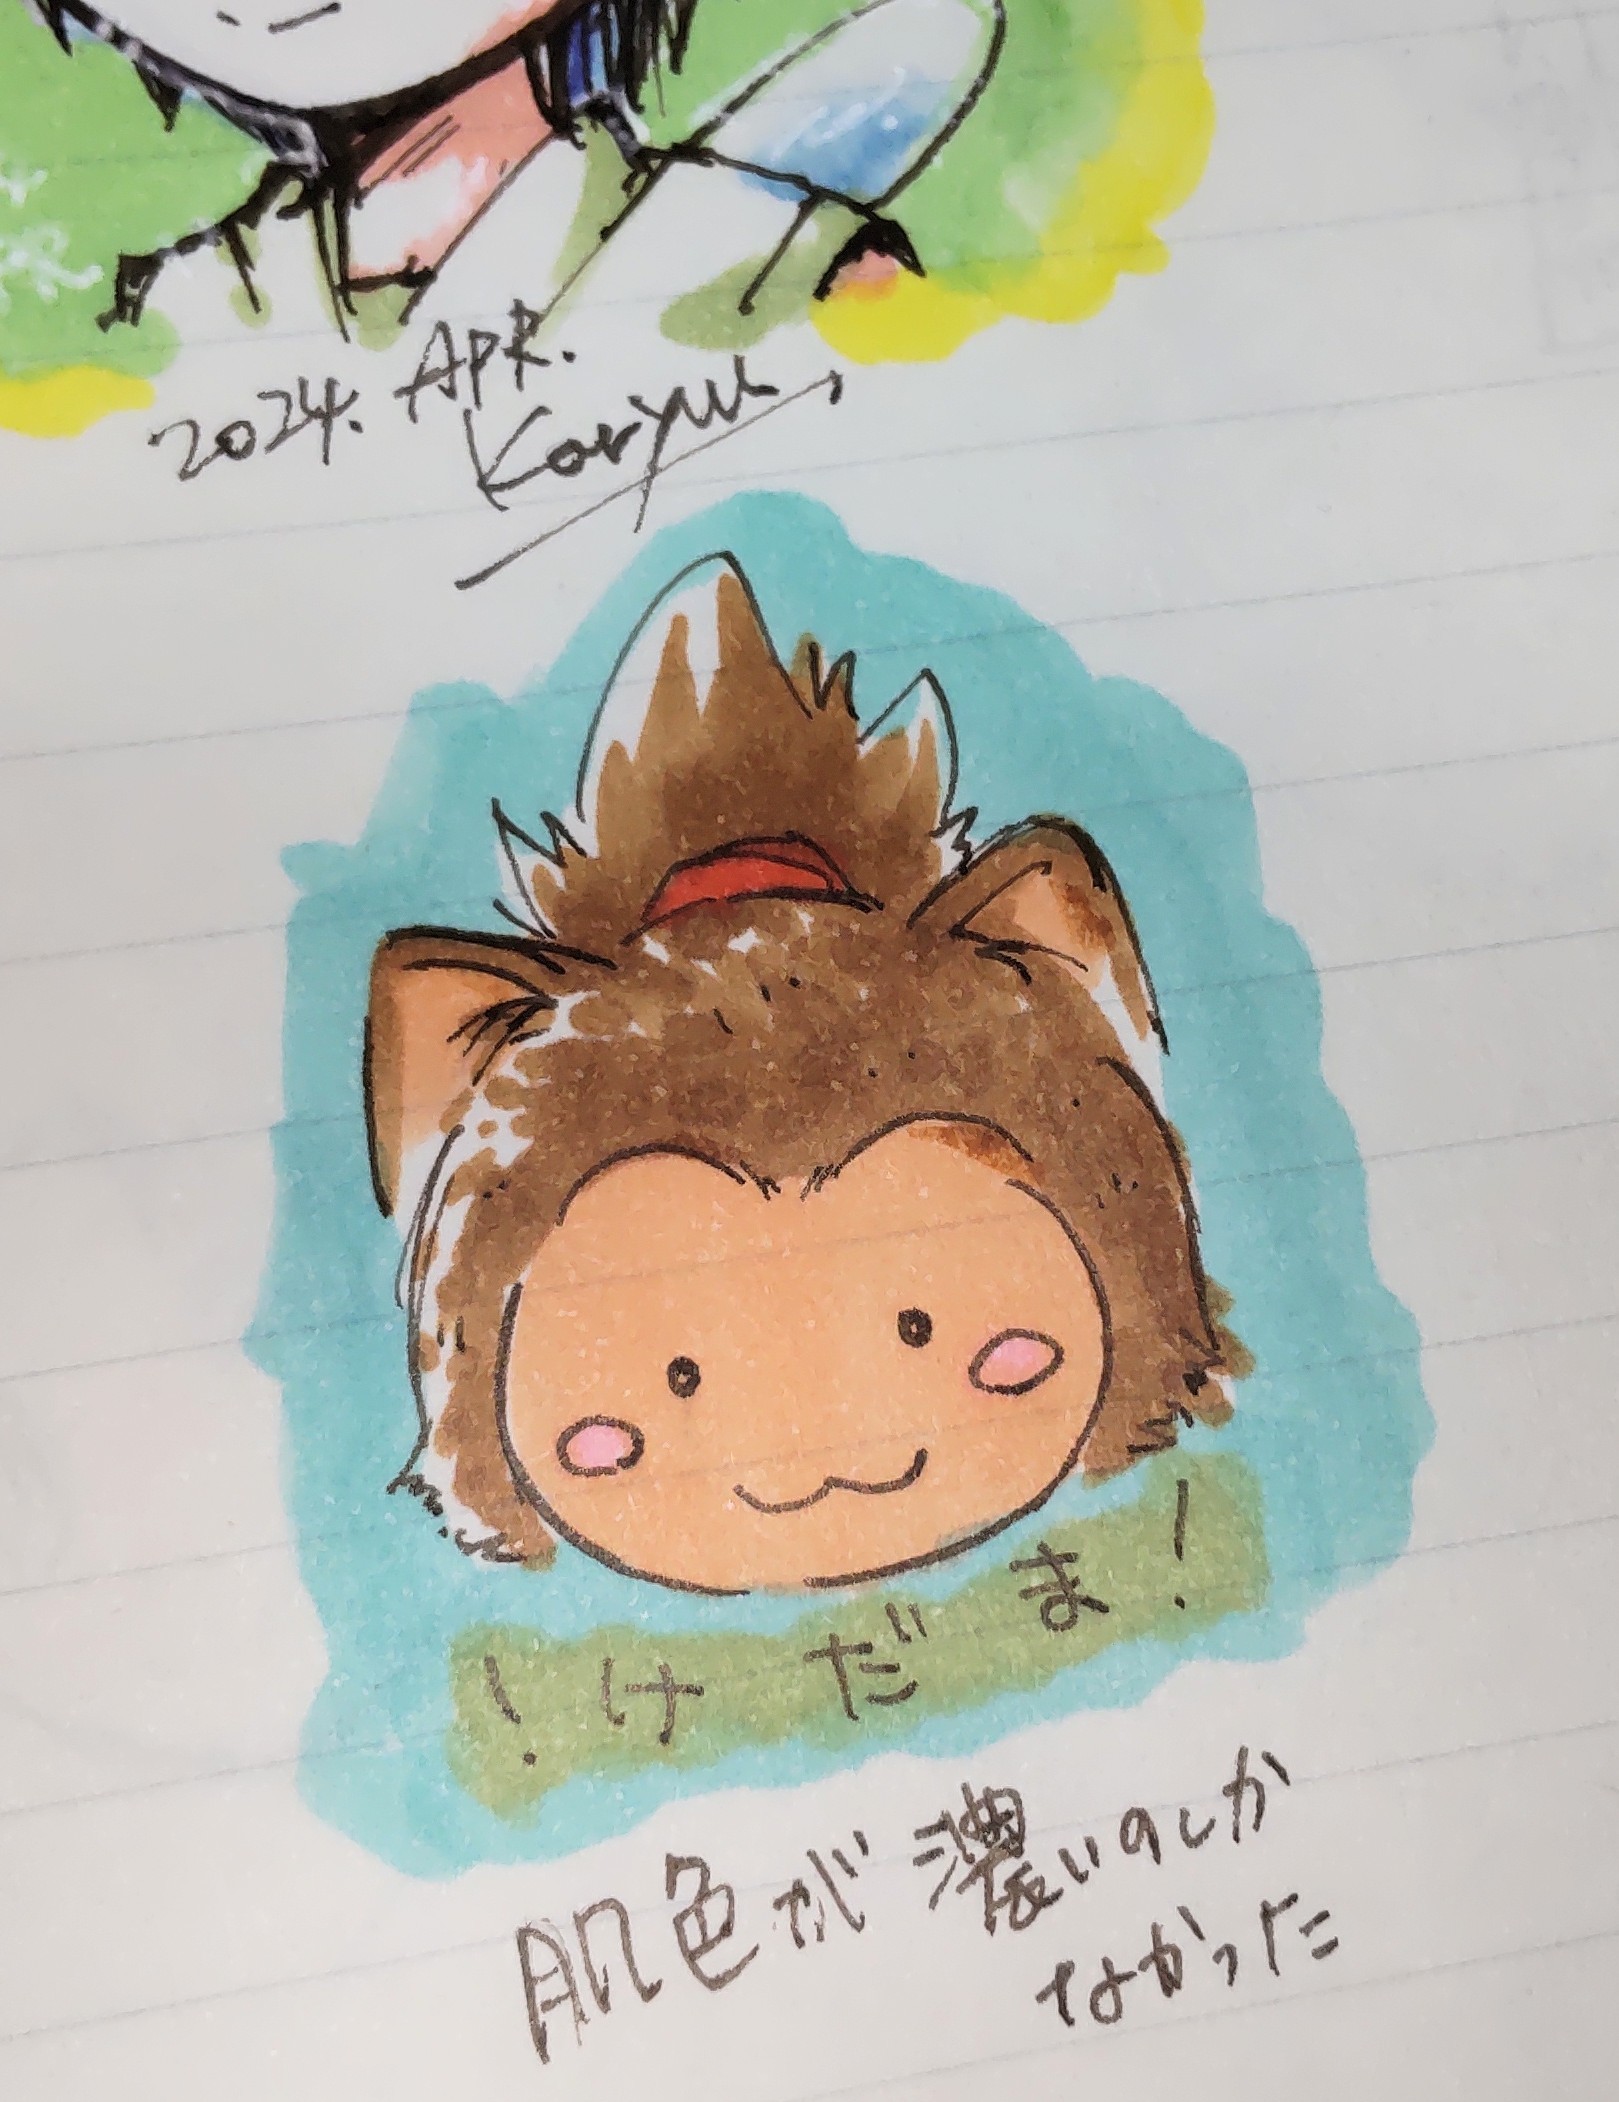 2024. APR.
Koryuu
!けだま!
肌色が濃いのしか
なかった